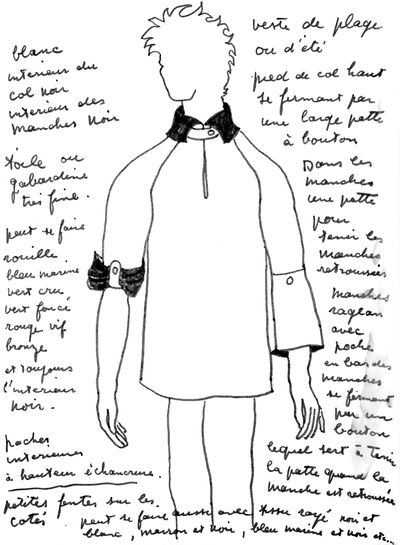 blanc
interieur du
col noir
interieur des
manches noir
toile ou
gabardine
très fine.
peut se faire
rouille
bleu marine
vert cru
vert foncé
rouge vif
bronze
et toujours
l'interieur
noir.
poches
interieures
à hauteur échancrure.
petites fentes sur les
cotés.
veste de plage
ou d'été
pied de col haut
se fermant par
une large patte
à bouton
Dans les
manches
une patte
pour
tenir les
manches
retroussées
Manches
raglan
avec
poche
en bas des
manches
se fermant
par un
bouton
lequel sert à tenir
la patte quand la
manche est retroussée
peut se faire aussi avec tissu rayé noir et
blanc, marron et noir, bleu marine et noir etc...